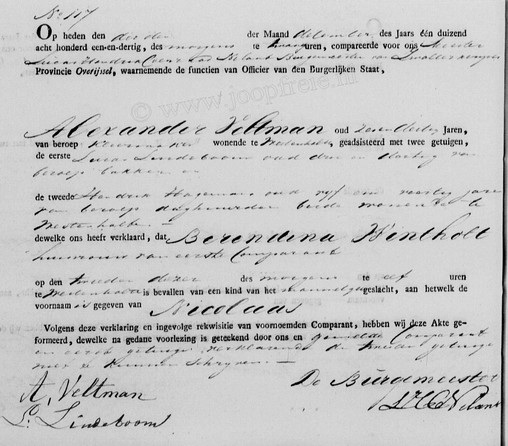 No 117
Op heden den derden der Maand december, des Jaars één duizend
acht honderd een-en-dertig, des morgens te uren, compareerde voor ons Meester
Lucas Hendrik van
Provincie Overijssel, waarnemende de functien van Officier van den Burgerlijken Staat,
Alexander Veltman oud Jaren,
van beroep wonende te geadsisteerd met twee getuigen,
de eerste Lucas Lindeboom oud drie en van
beroep bakker en
de tweede Hendrik Hageman oud vijf en veertig jaren
van beroep beide wonende te
dewelke ons heeft verklaard, dat Berendina Wentholt
huisvrouw van eerste Comparant
op den tweeden dezer des morgens te uren
te is bevallen van een kind van het geslacht, aan hetwelk de
voornaam is gegeven van Nicolaas
Volgens deze verklaring en ingevolge rekwisitie van voornoemden Comparant, hebben wij deze Akte ge-
formeerd, dewelke na gedane voorlezing is geteekend door ons en Comparant
en eerste getuige verklarende de tweede getuige
niet te kunnen schrijven
A. Veltman
De Burgemeester
L. Lindeboom
www.joopfreie.nl